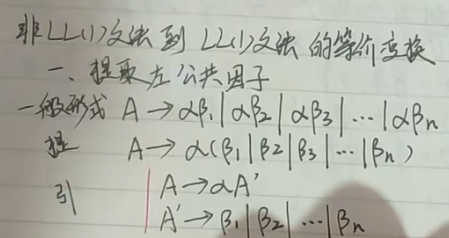 非LL(1)文法到LL(1)文法的等价变换
一、提取左公共因子
一般形式 A→αβ₁|αβ₂|αβ₃|…|αβn
提 A→α(β₁|β₂|β₃|…|βn)
引 A→αA'
A'→β₁|β₂|…|βn